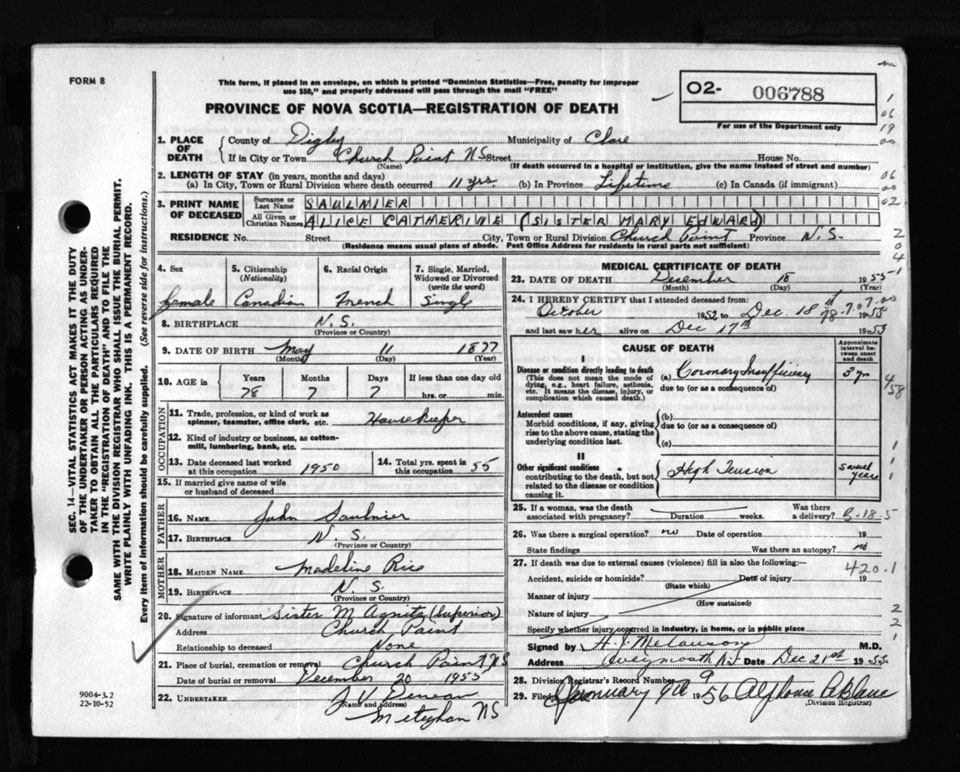 FORM 8
This form, if placed in an envelope, on which is printed "Dominion Statistics—Free, penalty for improper
use $50," and properly addressed will pass through the mail "FREE"
PROVINCE OF NOVA SCOTIA—REGISTRATION OF DEATH
02- 006788
For use of the Department only
1. PLACE OF DEATH { County of Digby Municipality of Clare
If in City or Town Church Point NS Street House No.
(Name) (If death occurred in a hospital or institution, give the name instead of street and number)
2. LENGTH OF STAY (in years, months and days)
(a) In City, Town or Rural Division where death occurred 11 yrs. (b) In Province Lifetime (c) In Canada (if immigrant)
3. PRINT NAME OF DECEASED { Surname or Last Name SAULNIER
All Given or Christian Names ALICE CATHERINE (SISTER MARY EDWARD)
RESIDENCE No. Street City, Town or Rural Division Church Point Province N.S.
(Residence means usual place of abode. Post Office Address for residents in rural parts not sufficient)
4. Sex female
5. Citizenship (Nationality) Canadian
6. Racial Origin French
7. Single, Married, Widowed or Divorced (write the word) Single
8. BIRTHPLACE N.S.
(Province or Country)
9. DATE OF BIRTH May 11 1877
(Month) (Day) (Year)
10. AGE in Years Months Days If less than one day old
78 7 7 hrs. or min.
OCCUPATION
11. Trade, profession, or kind of work as spinner, teamster, office clerk, etc. Housekeeper
12. Kind of industry or business, as cotton-mill, lumbering, bank, etc.
13. Date deceased last worked at this occupation 1950
14. Total yrs. spent in this occupation 55
15. If married give name of wife or husband of deceased
FATHER
16. NAME John Saulnier
17. BIRTHPLACE N.S.
(Province or Country)
MOTHER
18. MAIDEN NAME Madeline Rice
19. BIRTHPLACE N.S.
(Province or Country)
20. Signature of informant Sister M Agnita (Superior)
Address Church Point
Relationship to deceased None
21. Place of burial, cremation or removal Church Point NS
Date of burial or removal December 20 1955
22. UNDERTAKER
(Name and address)
Meteghan NS
MEDICAL CERTIFICATE OF DEATH
23. DATE OF DEATH December 18 1955
(Month) (Day)
24. I HEREBY CERTIFY that I attended deceased from:
October 1952 to Dec 18th 1955
and last saw her alive on Dec 17th 1955
CAUSE OF DEATH
Approximate interval between onset and death
I
Disease or condition directly leading to death
(This does not mean the mode of dying, e.g., heart failure, asthenia, etc. It means the disease, injury, or complication which caused death.)
(a) Coronary Insufficiency 3 yrs
due to (or as a consequence of)
Antecedent causes
Morbid conditions, if any, giving rise to the above cause, stating the underlying condition last.
(b)
due to (or as a consequence of)
(c)
II
Other significant conditions
contributing to the death, but not related to the disease or condition causing it.
High Tension several years
25. If a woman, was the death associated with pregnancy? Duration weeks. Was there a delivery?
26. Was there a surgical operation? no Date of operation 19
State findings Was there an autopsy? no
27. If death was due to external causes (violence) fill in also the following:— 420.1
Accident, suicide or homicide? Date of injury 19
(State which)
Manner of injury
(How sustained)
Nature of injury
Specify whether injury occurred in industry, in home, or in public place
Signed by M.D.
Address Weymouth N.S. Date Dec 21st 1955
28. Division Registrar's Record Number 9
29. Filed January 9th 1956 Alphonse LeBlanc
(Division Registrar)
SEC. 14—VITAL STATISTICS ACT MAKES IT THE DUTY
OF THE UNDERTAKER OR PERSON ACTING AS UNDER-
TAKER TO OBTAIN ALL THE PARTICULARS REQUIRED
IN THE "REGISTRATION OF DEATH" AND TO FILE THE
SAME WITH THE DIVISION REGISTRAR WHO SHALL ISSUE THE BURIAL PERMIT.
WRITE PLAINLY WITH UNFADING INK. THIS IS A PERMANENT RECORD.
Every item of information should be carefully supplied. (See reverse side for instructions.)
9004-3.2
22-10-52